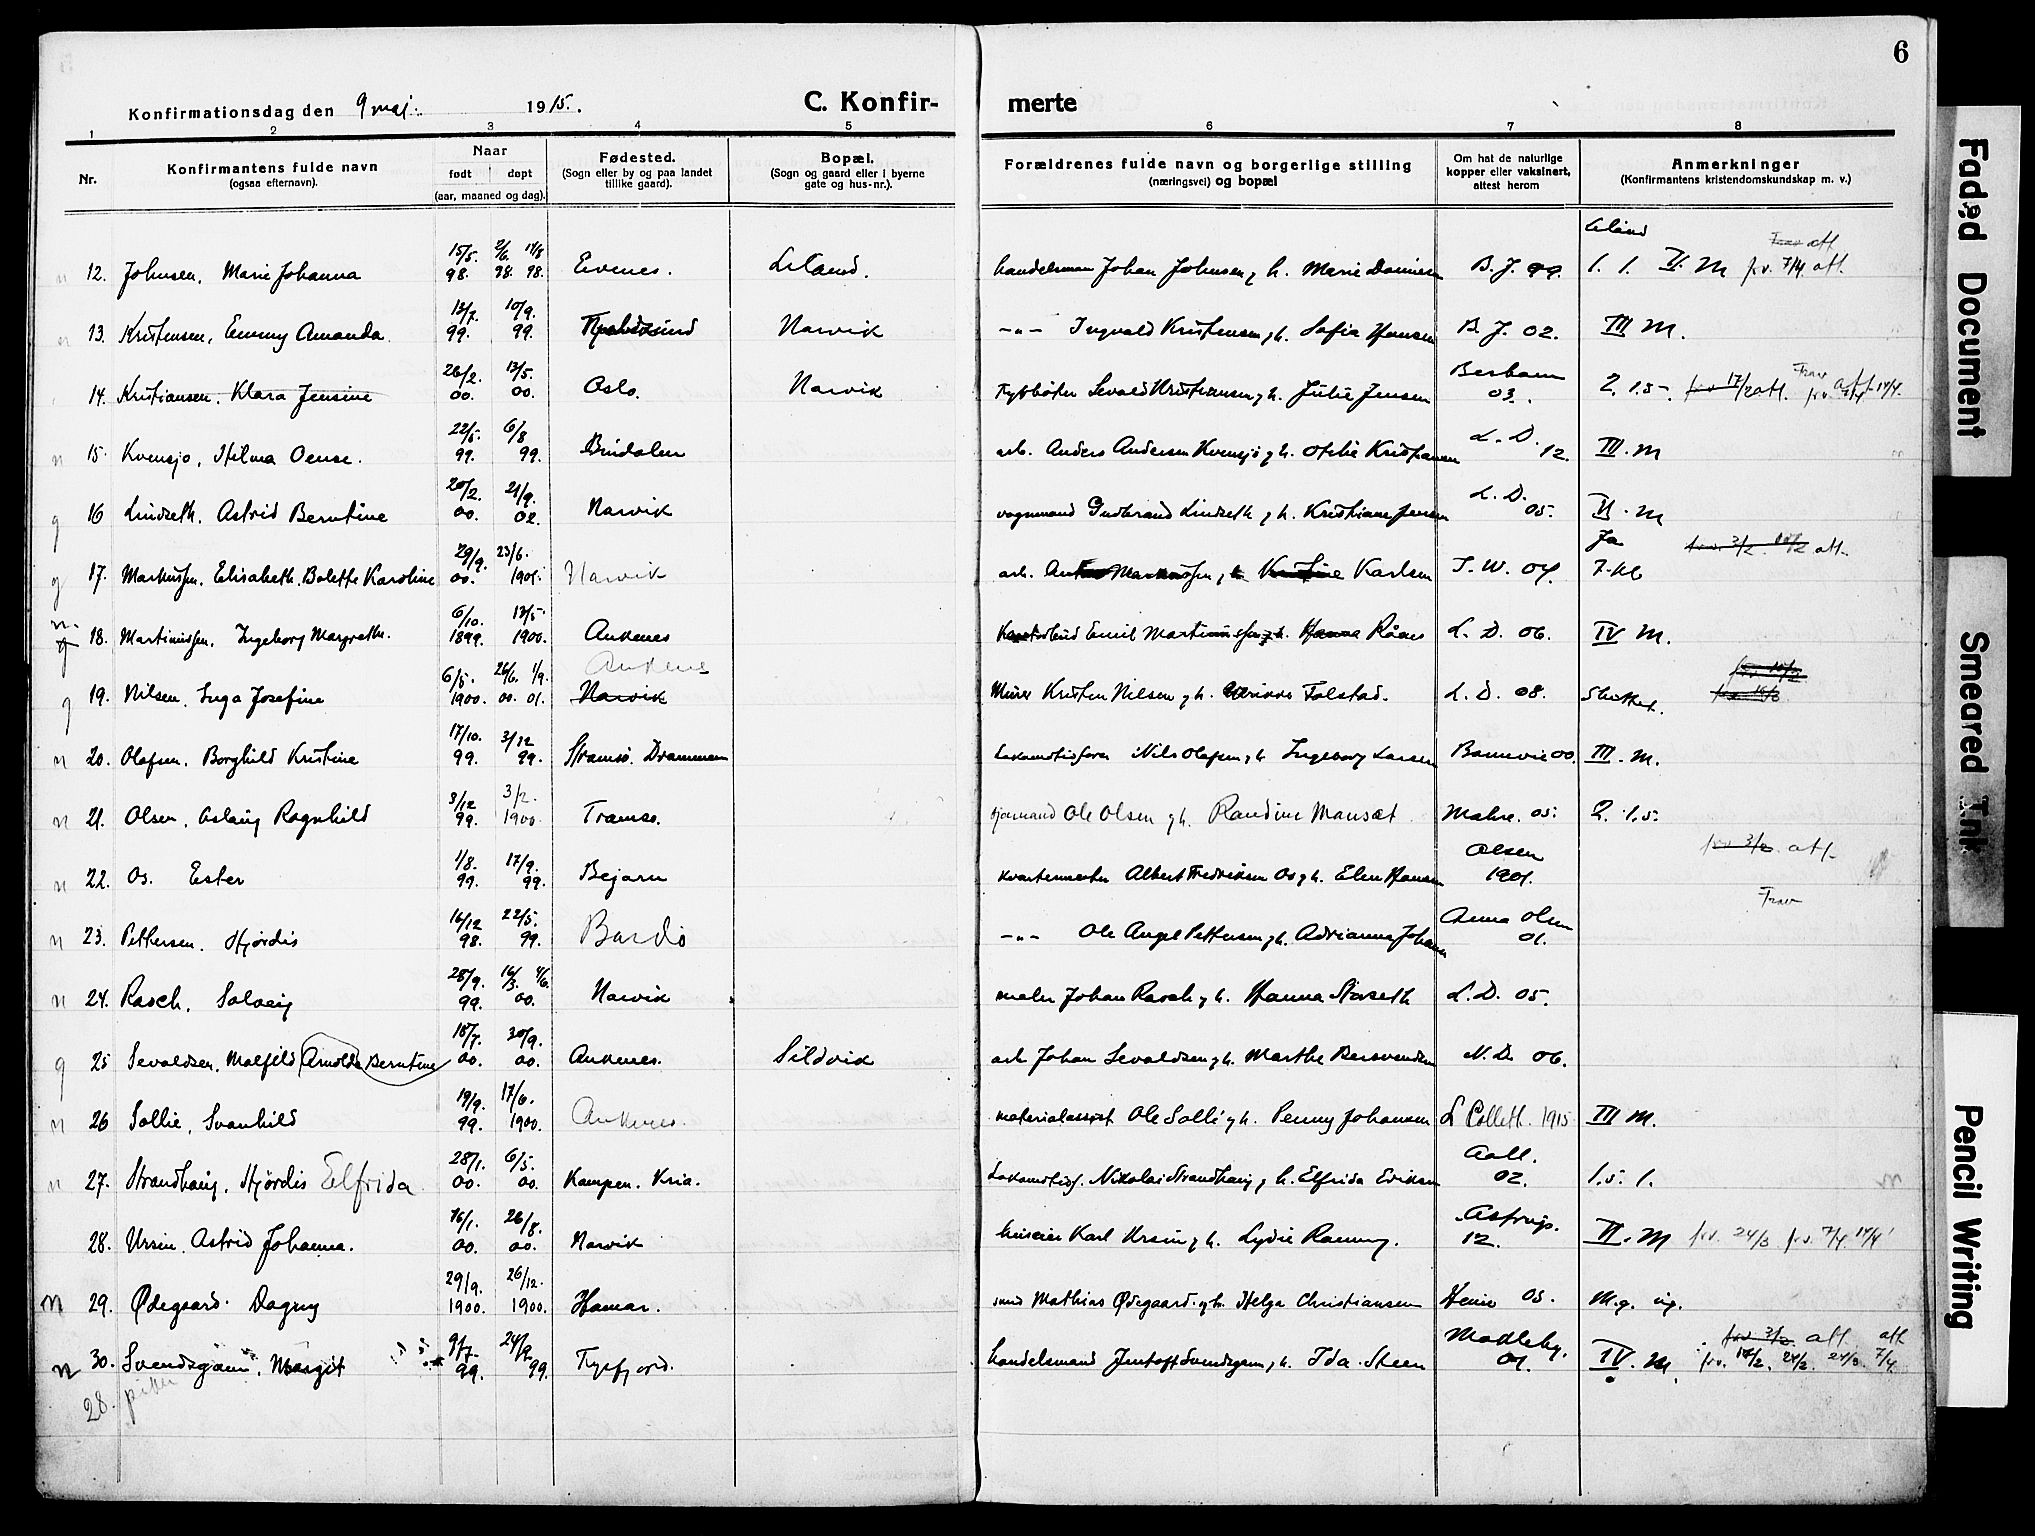 6
Konfirmationsdag den 9 mai. 1915.
C. Konfir-
merte
1 2 3 4 5 6 7 8
Nr.
Konfirmantens fulde navn
(ogsaa efternavn).
Naar
født døpt
(aar, maaned og dag).
Fødested.
(Sogn eller by og paa landet
tillike gaard).
Bopæl.
(Sogn og gaard eller i byerne
gate og hus-nr.).
Forældrenes fulde navn og borgerlige stilling
(næringsvei) og bopæl
Om hat de naturlige
kopper eller vaksinert,
attest herom
Anmerkninger
(Konfirmantens kristendomskundskap m. v.)
n 12. Johnsen, Marie Johanna 15/5. 98. 2/6. 98. Evenes. Liland. handelsman Johan Johnsen g h. Marie B. J. 99. 1. 1. II. M frv. 7/4 att.
13. Kristensen, Emmy Amanda 13/7. 99. 10/9. 99. Narvik -"- Ingvald Kristensen g h. Sofie Hansen B. J. 02. III M.
14. Kristiansen, Klara Jensine 26/2. 00. 13/5. 00. Oslo. Narvik Sevald Kristiansen g h. Julie Jensen 03. 2. 1.5 frv 17/2 att. Frav att 14/4.
n 15. Kvensjo, Hilma Oense. 22/5. 99. 6/8 99. Bindalen arb. Anders Andersen Kvensjø g h. Otelie Kristiansen L. D. 12. III. M
g 16 Lindseth, Astrid Berntine 20/2. 00. 21/9. 02. Narvik vognmand Gudbrand Lindseth g h. Kristiane Jensen L. D. 05. II. M
g 17. Markussen, Elisabeth, Bolette Karoline 29/9. 00. 23/6. 1901. Narvik arb. Markussen g h Kristine Karlsen J. W. 04. Ja 7-kl frv. 3/2 att.
n. g 18. Martinussen, Ingeborg Margrethe. 6/10. 1899. 13/5. 1900. Ankenes Emil Martinussen g h. Hanna Rånes L. D. 06. IV M.
g 19. Nilsen, Inga Josefine 6/5. 1900. 26/6. 00. 1/9. 01. Ankenes Narvik Murer Kristen Nilsen g h. Ulrikke Tolstad. L. D. 08.
n 20. Olafsen, Borghild Kristine 17/10. 99. 3/12 99. Strømsø. Drammen Lokomotivfører Nils Olafsen g h Ingeborg Larsen 00. III. M.
n 21. Olsen, Aslaug Ragnhild 3/12 99. 3/2. 1900. Tromsø. Ole Olsen g h. Randine Mansæt 05. 2. 1.5.
n 22. Os. Ester 1/8. 99. 17/9. 99. Bejarn kvartermester Albert Fredriksen Os g h. Elen Hansen Olsen 1901. frv 3/2. att.
n 23. Pettersen, Hjørdis 16/12 98. 22/5. 99. Bardo -"- Ole Angel Pettersen g h. Adrianna Johansen Anna Olsen 01. Frav
n 24. Rasch, Solveig 28/9. 99. 16/3. 4/6. 00. Narvik maler Johan Rasch g h. Hanna Størseth L. D. 05.
g 25 Sevaldsen, Malfild Arnolda Berntine 18/7. 00. 30/9. 00. Ankenes. Sildvik arb Johan Sevaldsen g h. Marthe Bersvendsen N. D. 06.
n 26 Sollie, Svanhild 19/9. 99. 17/6. 1900. Ankenes. materialassist Ole Solli g h. Penny Johansen L Colleth. 1915 III M.
n 27. Strandhaug, Hjørdis Elfrida 28/1. 00. 6/5. 00. Kampen. Kria. Lokomotivf. Nikolai Strandhaug g h. Elfrida Eriksen Aall. 02. 1.5. 1.
28. Ursin, Astrid Johanna. 16/1. 00. 26/8. 00. Narvik Karl Ursin g h. Lydie Ramm. Astrup. 12. II. M frv. 24/3 frv. 7/4. 14/4
n 29. Ødegaard. Dagny 29/9. 1900. 26/12. 1900. Hamar. smed Mathias Ødegaard. g h. Helga Christiansen 05. M.g.
n 30. Svendsgam, Margit 9/7. 99. 24/9. 99. Tysfjord. handelsmand Jentoft Svendsgam g h. Ida Steen 01. IV. M. frv 3/2. att. att frv. 17/2. 24/2. 24/3. 7/4.
28. piker
Faded Document
Smeared Ink
Pencil Writing